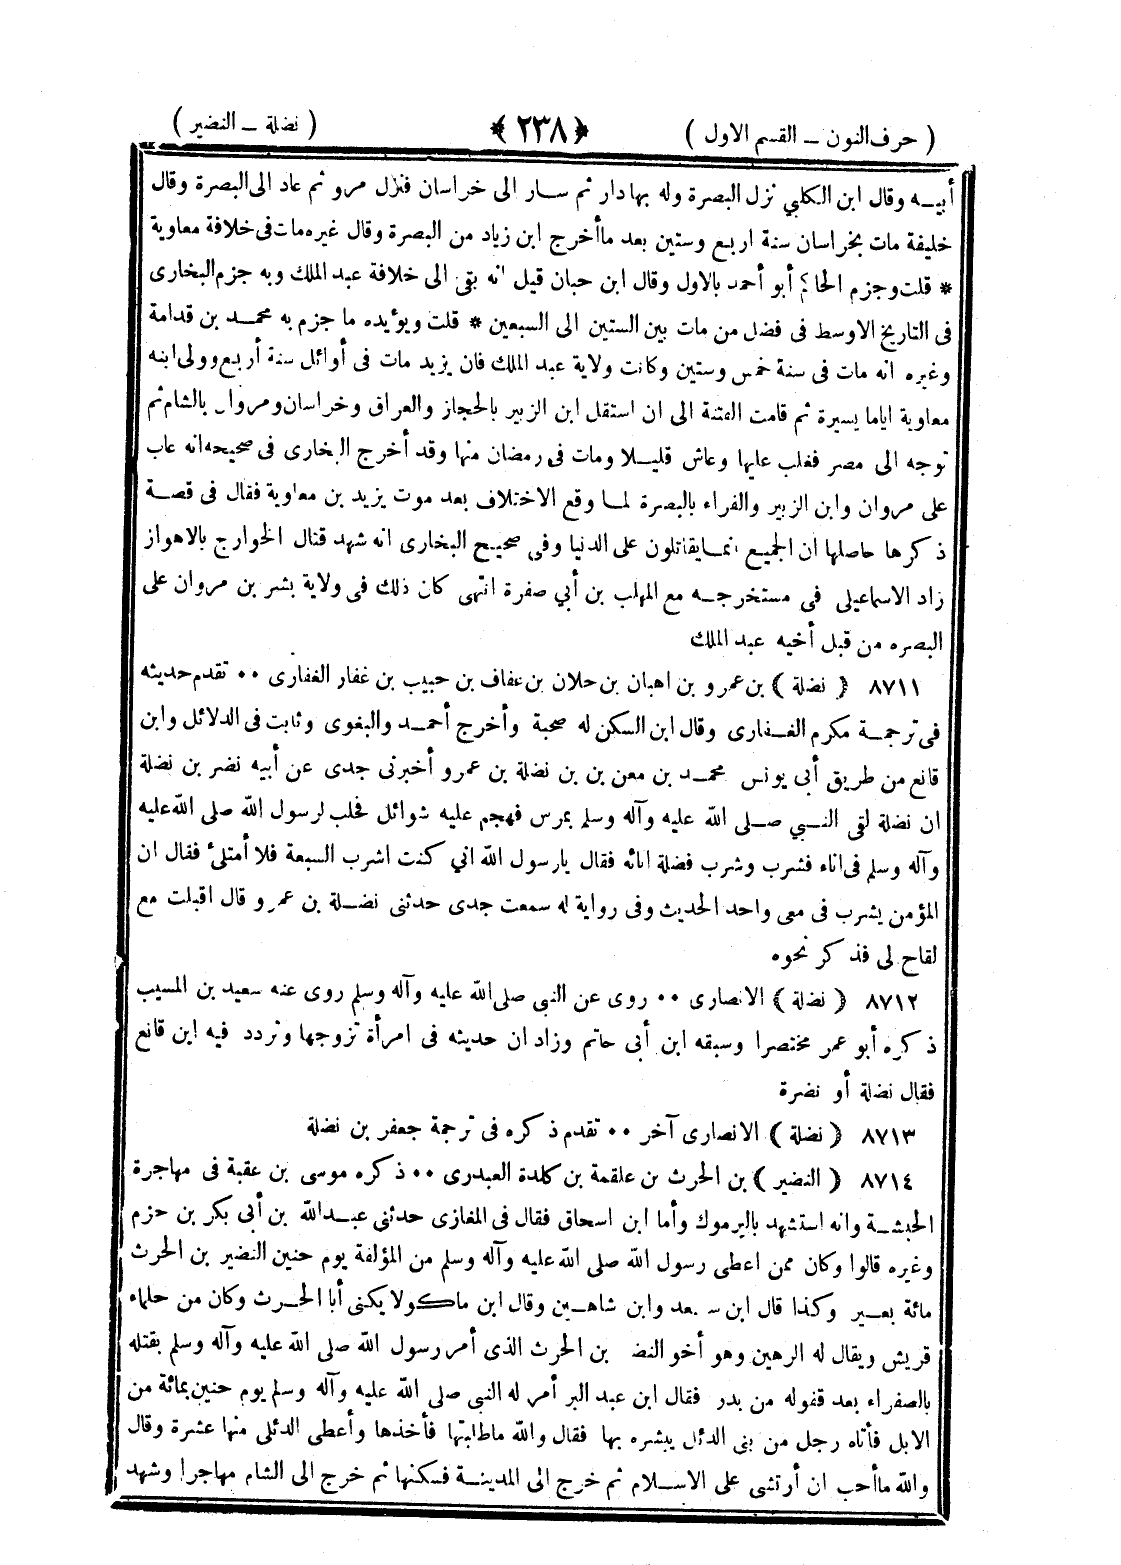 ( حرف النون ـ القسم الاول ) ﴿٢٣٨﴾ ( نضلة ـ النضير )
أبيه وقال ابن الكلبي نزل البصرة وله بها دار ثم سار الى خراسان فنزل مرو ثم عاد الى البصرة وقال
خليفة مات بخراسان سنة اربع وستين بعد ما أخرج ابن زياد من البصرة وقال غيره مات فى خلافة معاوية
* قلت وجزم الحاكم أبو أحمد بالاول وقال ابن حبان قيل انه بقى الى خلافة عبد الملك وبه جزم البخارى
فى التاريخ الاوسط فى فضل من مات بين الستين الى السبعين * قلت ويؤيده ما جزم به محمد بن قدامة
وغيره انه مات فى سنة خمس وستين وكانت ولاية عبد الملك فان يزيد مات فى أوائل سنة أربع وولى ابنه
معاوية اياما يسيرة ثم قامت الفتنة الى ان استقل ابن الزبير بالحجاز والعراق وخراسان ومروان بالشام ثم
توجه الى مصر فغلب عليها وعاش قليلا ومات فى رمضان منها وقد أخرج البخارى فى صحيحه انه عاب
على مروان وابن الزبير والفراء بالبصرة لما وقع الاختلاف بعد موت يزيد بن معاوية فقال فى قصة
ذكرها حاصلها ان الجميع انما يقاتلون على الدنيا وفى صحيح البخارى انه شهد قتال الخوارج بالاهواز
زاد الاسماعيلى فى مستخرجه مع المهلب بن أبي صفرة انتهى كان ذلك فى ولاية بشر بن مروان على
البصره من قبل أخيه عبد الملك
٨٧١١ ( نضلة ) بن عمرو بن اهبان بن حلان بن عفاف بن حبيب بن غفار الغفارى ٠٠ تقدم حديثه
فى ترجمة مكرم الغفارى وقال ابن السكن له صحبة وأخرج أحمد والبغوى وثابت فى الدلائل وابن
قانع من طريق أبى يونس محمد بن معن بن بن نضلة بن عمرو أخبرنى جدى عن أبيه نضر بن نضلة
ان نضلة لقى النبي صلى الله عليه وآله وسلم بمرس فهجم عليه شوائل فحلب لرسول الله صلى الله عليه
وآله وسلم فى اناء فشرب وشرب فضلة انائه فقال يا رسول الله اني كنت اشرب السبعة فلا أمتلئ فقال ان
المؤمن يشرب فى معى واحد الحديث وفى رواية له سمعت جدى حدثنى نضلة بن عمرو قال اقبلت مع
لقاح لى فذكر نحوه
٨٧١٢ ( نضلة ) الانصارى ٠٠ روى عن النبى صلى الله عليه وآله وسلم روى عنه سعيد بن المسيب
ذكره أبو عمر مختصرا وسبقه ابن أبى حاتم وزاد ان حديثه فى امرأة تزوجها وتردد فيه ابن قانع
فقال نضلة أو نضرة
٨٧١٣ ( نضلة ) الانصارى آخر ٠٠ تقدم ذكره فى ترجمة جعفر بن نضلة
٨٧١٤ ( النضير ) بن الحرث بن علقمة بن كلدة العبدرى ٠٠ ذكره موسى بن عقبة فى مهاجرة
الحبشة وانه استشهد باليرموك وأما ابن اسحاق فقال فى المغازى حدثنى عبد الله بن أبى بكر بن حزم
وغيره قالوا وكان ممن اعطى رسول الله صلى الله عليه وآله وسلم من المؤلفة يوم حنين النضير بن الحرث
مائة بعير وكذا قال ابن سعد وابن شاهين وقال ابن ماكولا يكنى أبا الحرث وكان من حلماء
قريش ويقال له الرهين وهو أخو النضر بن الحرث الذى أمر رسول الله صلى الله عليه وآله وسلم بقتله
بالصفراء بعد قفوله من بدر فقال ابن عبد البر أمر له النبى صلى الله عليه وآله وسلم يوم حنين بمائة من
الابل فأتاه رجل من بنى الدئل يبشره بها فقال والله ما طلبتها فأخذها وأعطى الدئلى منها عشرة وقال
والله ما أحب ان أرتشى على الاسلام ثم خرج الى المدينة فسكنها ثم خرج الى الشام مهاجرا وشهد